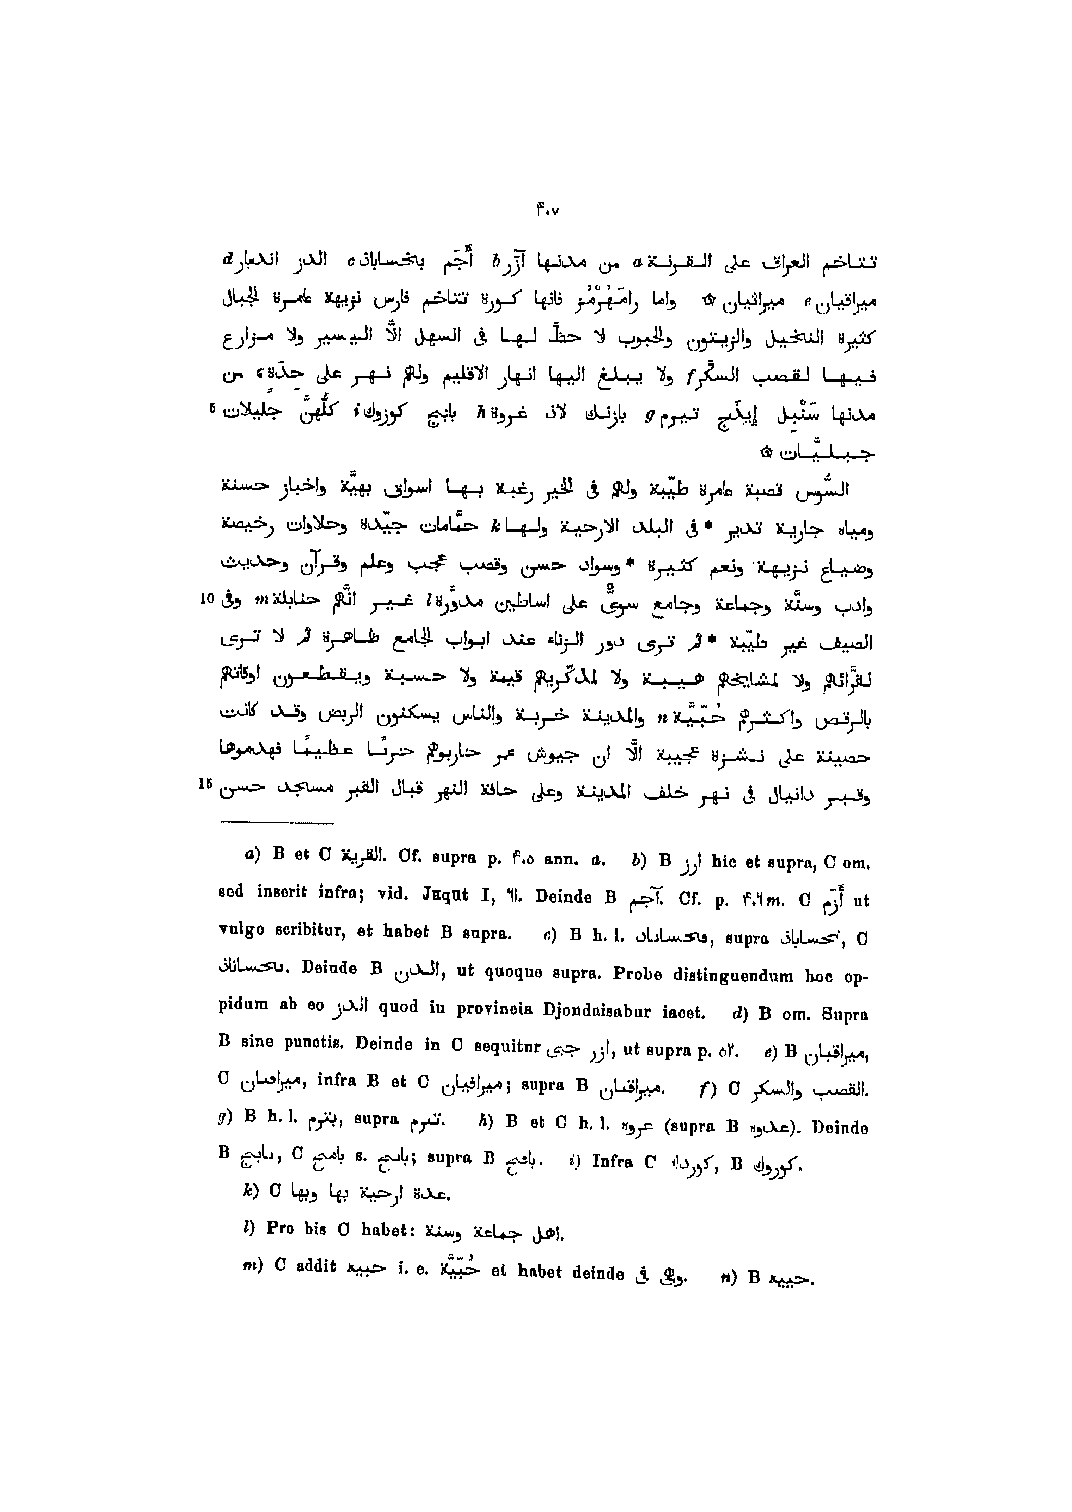 ۴۰۷
تتاخم العراق على القرنة a من مدنها آزَر b أَجَم بخساباذ c الدز اندبار d
ميراقيان e ميراثيان ۞ واما رامَهُرْمُز فانها كورة تتاخم فارس نزيهة عامرة الجبال
كثيرة النخيل والزيتون والحبوب لا حظّ لها فى السهل الّا اليسير ولا مزارع
فيها لقصب السكّر f ولا يبلغ اليها انهار الاقليم ولهم نهر على حِدَة من
مدنها سَنْبِل إيذَج تيرم g بازنك لاذ غروة h بابج كوزوك i كلُّهنّ جليلات 5
جبليَّات ۞
السُّوس قصبة عامرة طيّبة ولهم فى الخير رغبة بها اسواق بهيَّة واخباز حسنة
ومياه جارية تدير * فى البلد الارحية ولها k حمَّامات جيّدة وحلاوات رخيصة
وضياع نزيهة ونعم كثيرة * وسواد حسن وقصب عجب وعلم وقرآن وحديث
وادب وسنَّة وجماعة وجامع سوىٌّ على اساطين مدوَّرة l غير انّهم حنابلة m وفى 10
الصيف غير طيّبة * ثم ترى دور الزناء عند ابواب الجامع ظاهرة ثم لا ترى
لقرَّائهم ولا لمشايخهم هيبة ولا لمذكّريهم قيمة ولا حسبة ويقطعون اوقاتهم
بالرقص واكثرهم حُبّيَّة n والمدينة خربة والناس يسكنون الربض وقد كانت
حصينة على نشزة عجيبة الّا ان جيوش عمر حاربوهم حربًا عظيمًا فهدموها
وقبر دانيال فى نهر خلف المدينة وعلى حافة النهر قبال القبر مسجد حسن 15
a) B et C القرية. Cf. supra p. ۴۰۵ ann. a. b) B ارز hic et supra, C om.
sed inserit infra; vid. Jaqut I, ٦١. Deinde B آجم. Cf. p. ۴۰۶ m. C أَزَم ut
vulgo scribitur, et habet B supra. c) B h. l. , supra , C
. Deinde B الدن, ut quoque supra. Probe distinguendum hoc op-
pidum ab eo الدز quod in provincia Djondaisabur iacet. d) B om. Supra
B sine punctis. Deinde in C sequitur ازر جبى, ut supra p. ۵۲. e) B ميراقبان,
C , infra B et C ميرافيان; supra B ميراقيان. f) C القصب والسكر.
g) B h. l. بترم, supra تيرم. h) B et C h. l. عروه (supra B عدوه). Deinde
B , C s. بابج; supra B . i) Infra C , B كوروك.
k) C عدة ارحية بها وبها.
l) Pro his C habet: اهل جماعة وسنة.
m) C addit حبيه i. e. حُبّيَّة et habet deinde وهى فى. n) B حبيه.